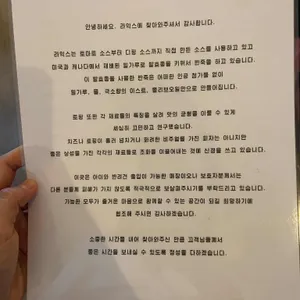 안녕하세요. 리믹스에 찾아와주셔서 감사합니다.
리믹스는 토마토 소스부터 디핑 소스까지 직접 만든 소스를 사용하고 있고
미국과 캐나다에서 재배된 밀가루로 발효종을 키워서 반죽을 하고 있습니다.
이 발효종을 사용한 반죽은 어떠한 인공 첨가물 없이
밀가루, 물, 극소량의 이스트, 올리브오일만으로 만들어집니다.
토핑 또한 각 재료들의 특징을 살려 맛의 균형을 이룰 수 있게
세심히 고민하고 연구했습니다.
치즈나 토핑이 흘러 넘치거나 화려한 비주얼을 가진 피자는 아니지만
좋은 낭성을 가진 각각의 재료들로 조화를 이끌어내는 것에 신경을 쓰고 있습니다.
이곳은 아이와 반려견 출입이 가능한 매장이오니 보호자분께서는
다른 분들께 피해가 가지 않도록 적극적으로 보살펴주시기를 부탁드리고 있습니다.
가능한 모두가 즐거운 마음으로 함께할 수 있는 공간이 되길 희망하기에
협조해 주시면 감사하겠습니다.
소중한 시간을 내어 찾아와주신 만큼 고객님들께서
좋은 시간을 보내실 수 있도록 정성을 다하겠습니다.